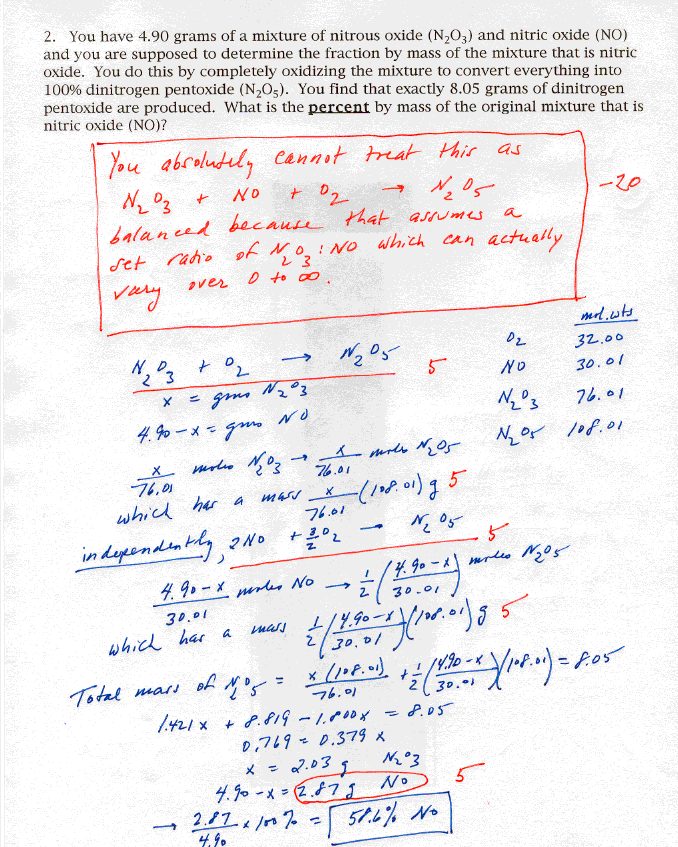 2. You have 4.90 grams of a mixture of nitrous oxide (N₂O₃) and nitric oxide (NO)
and you are supposed to determine the fraction by mass of the mixture that is nitric
oxide. You do this by completely oxidizing the mixture to convert everything into
100% dinitrogen pentoxide (N₂O₅). You find that exactly 8.05 grams of dinitrogen
pentoxide are produced. What is the percent by mass of the original mixture that is
nitric oxide (NO)?
You absolutely cannot treat this as
N₂O₃ + NO + O₂ → N₂O₅
-20
balanced because that assumes a
set ratio of N₂O₃ : NO which can actually
vary over 0 to ∞.
mol. wts
O₂ 32.00
N₂O₃ + O₂ → N₂O₅ 5
NO 30.01
x = gms N₂O₃
N₂O₃ 76.01
4.90 - x = gms NO
N₂O₅ 108.01
x/76.01 moles N₂O₃ → x/76.01 moles N₂O₅
which has a mass x/76.01 (108.01) g 5
independently, 2NO + 3/2 O₂ → N₂O₅ 5
4.90 - x/30.01 moles NO → 1/2 (4.90 - x/30.01) moles N₂O₅
which has a mass 1/2 (4.90 - x/30.01)(108.01) g 5
Total mass of N₂O₅ = x (108.01)/76.01 + 1/2 (4.90 - x/30.01)(108.01) = 8.05
1.421 x + 8.819 - 1.800 x = 8.05
0.769 = 0.379 x
x = 2.03 g N₂O₃
4.90 - x = 2.87 g NO 5
→ 2.87/4.90 x 100 % = 58.6% NO